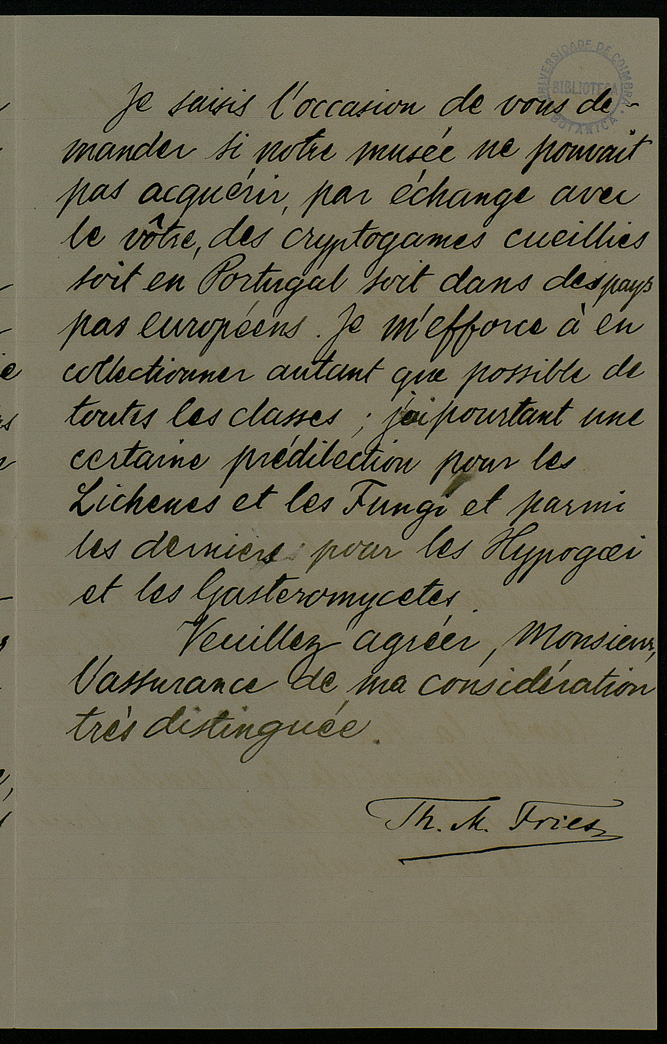 UNIVERSIDADE DE COIMBRA
BIBLIOTECA
BOTANICA
Je saisis l'occasion de vous de-
mander si notre musée ne pouvait
pas acquérir, par échange avec
le vôtre, des cryptogames cueillies
soit en Portugal soit dans des pays
pas européens. Je m'efforce à en
collectionner autant que possible de
toutes les classes; j'ai pourtant une
certaine prédilection pour les
Lichenes et les Fungi et parmi
les derniers pour les Hypogæi
et les Gasteromycetes.
Veuillez agréer, Monsieur,
l'assurance de ma considération
très distinguée.
Th. M. Fries